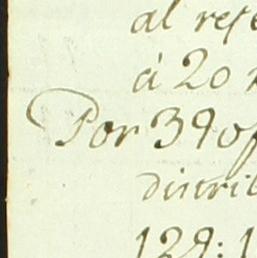 al refe
à 20
Por 390
discrib
129:1